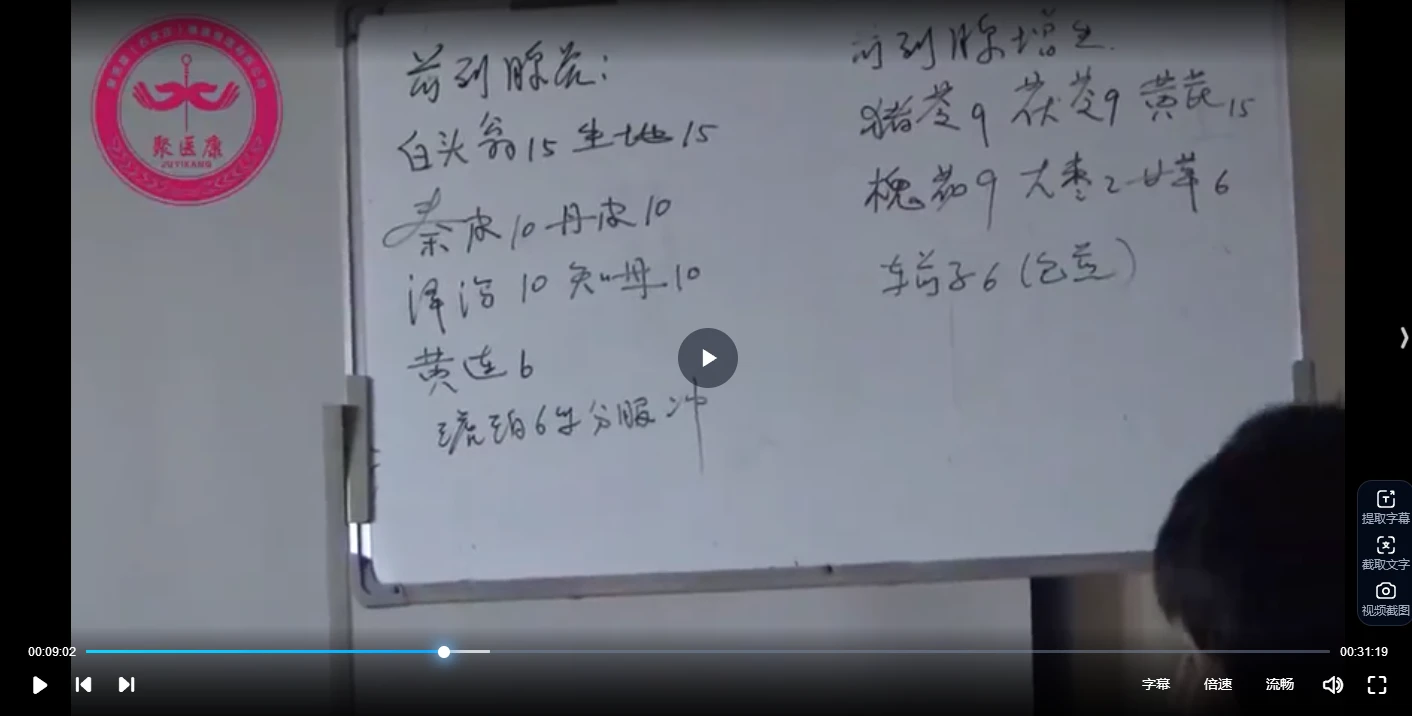 聚医康
JUYIKANG
前列腺炎：
白头翁15 生地15
秦皮10 丹皮10
泽泻10 知母10
黄连6
琥珀6 分服 冲
前列腺增生
猪苓9 茯苓9 黄芪15
槐花9 大枣2 甘草6
车前子6（包煎）
提取字幕
截取文字
视频截图
00:09:02
00:31:19
字幕 倍速 流畅